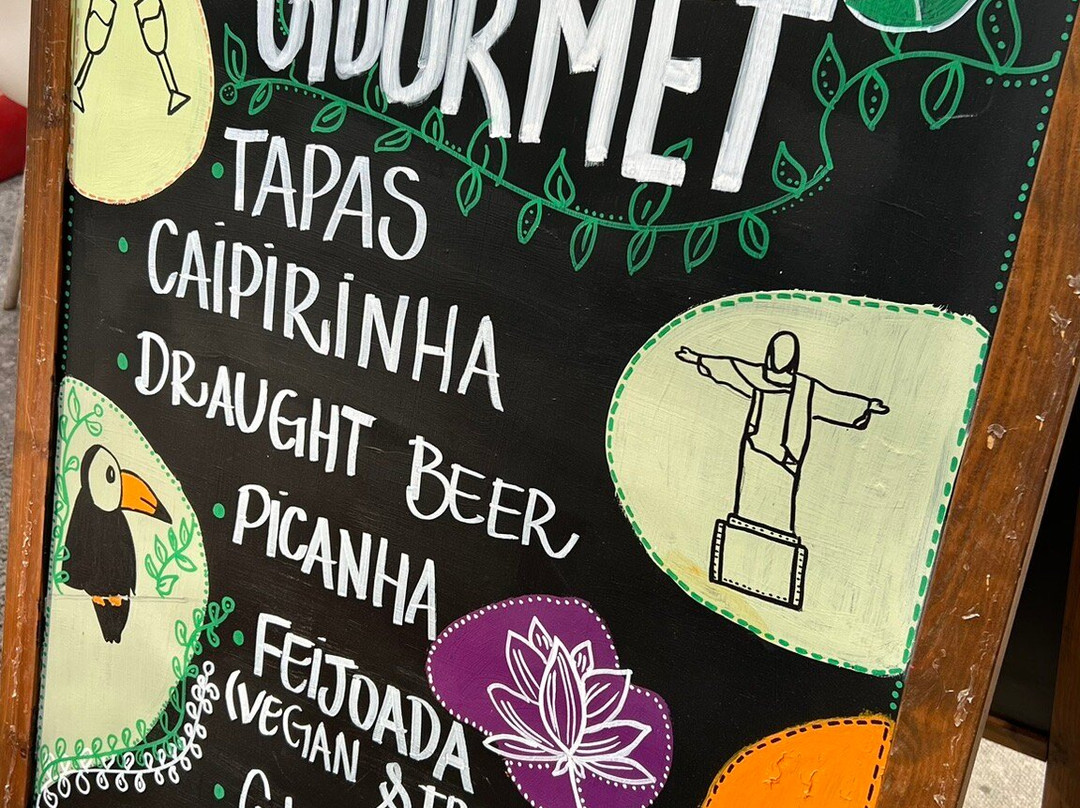 GOURMET
• TAPAS
• CAIPIRINHA
• DRAUGHT BEER
• PICANHA
• FEIJOADA
(VEGAN &